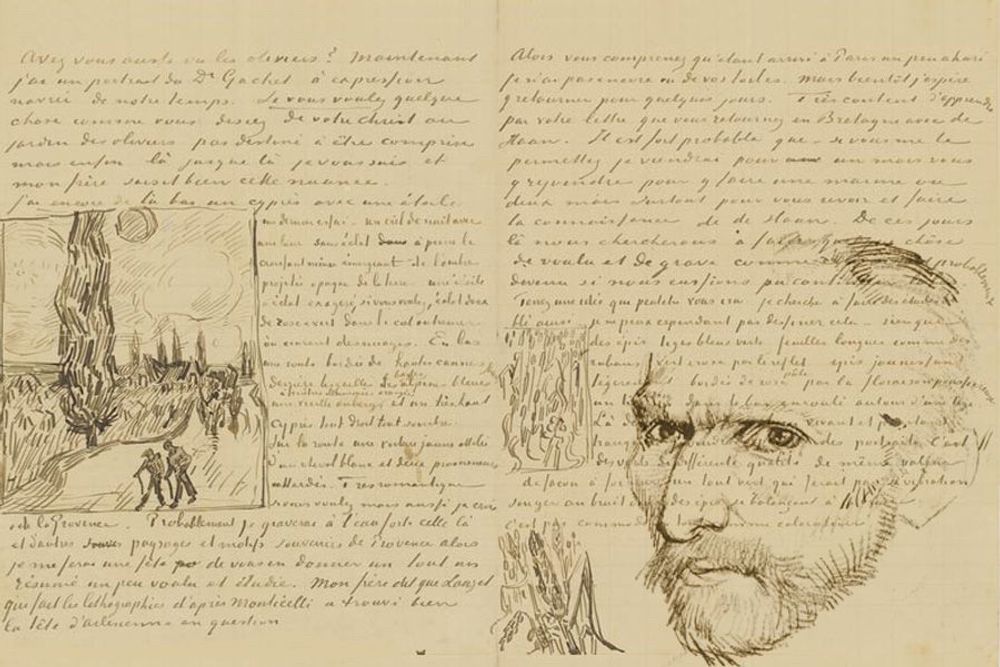 Avez vous aussi vu les oliviers? Maintenant
j'ai un portrait du Dr Gachet à expression
navrée de notre temps. Si vous voulez quelque
chose comme vous disiez de votre Christ au
jardin des oliviers pas destiné à être compris
mais enfin là jusque là je vous suis et
mon frère saisit bien cette nuance.
J'ai encore de là bas un cyprès avec une étoile
un dernier essai - un ciel de nuit avec
une lune sans éclat à peine le
croissant mince émergeant de l'ombre
projetée opaque de la terre - une étoile
à éclat exagéré, si vous voulez, éclat doux
de rose & vert dans le ciel outremer
où courent des nuages. En bas
une route bordée de hautes cannes
derrière lesquelles les basses alpines bleues
une vieille auberge et un très haut
cyprès tout droit tout sombre.
Sur la route une voiture jaune attelée
d'un cheval blanc et deux promeneurs
attardés. Très romantique
si vous voulez mais aussi je crois
de la Provence. Probablement je graverai à l'eau forte celle là
et d'autres paysages et motifs souvenirs de Provence alors
je me ferai une fête de vous en donner un tout un
résumé un peu voulu et étudié. Mon frère dit que Lauzet
qui fait les lithographies d'après Monticelli a trouvé bien
la tête d'arlésienne en question
Alors vous comprenez qu'étant arrivé à Paris un peu ahuri
je n'ai pas encore vu de vos toiles. Mais bientôt j'espère
y retourner pour quelques jours. Très content d'apprendre
par votre lettre que vous retournez en Bretagne avec de
Haan. Il est fort probable que - si vous me le
permettez je viendrai pour un mois vous
y rejoindre pour y faire une marine ou
deux mais surtout pour vous revoir et faire
la connaissance de de Haan. De ces jours
là nous chercherons à faire quelque chose
de voulu et de grave comme probablement
devenu si nous eussions pu
Tenez une idée qui peutetre vous ira je cherche à faire des études de
blé ainsi je ne peux cependant pas dessiner cela - rien que
des épis tiges bleus verts feuilles longues comme des
rubans vert & rose par le reflet épis jaunissant
légèrement bordés de rose pâle par la floraison poussiéreuse
un dans le bas enroulé autour d'une tige
Là de vivant et
des portraits. C'est
des verts de différente qualité de même valeur
de façon à un tout vert qui ferait par sa vibration
songer au bruit des épis se balançant à
c'est pas commode comme coloration